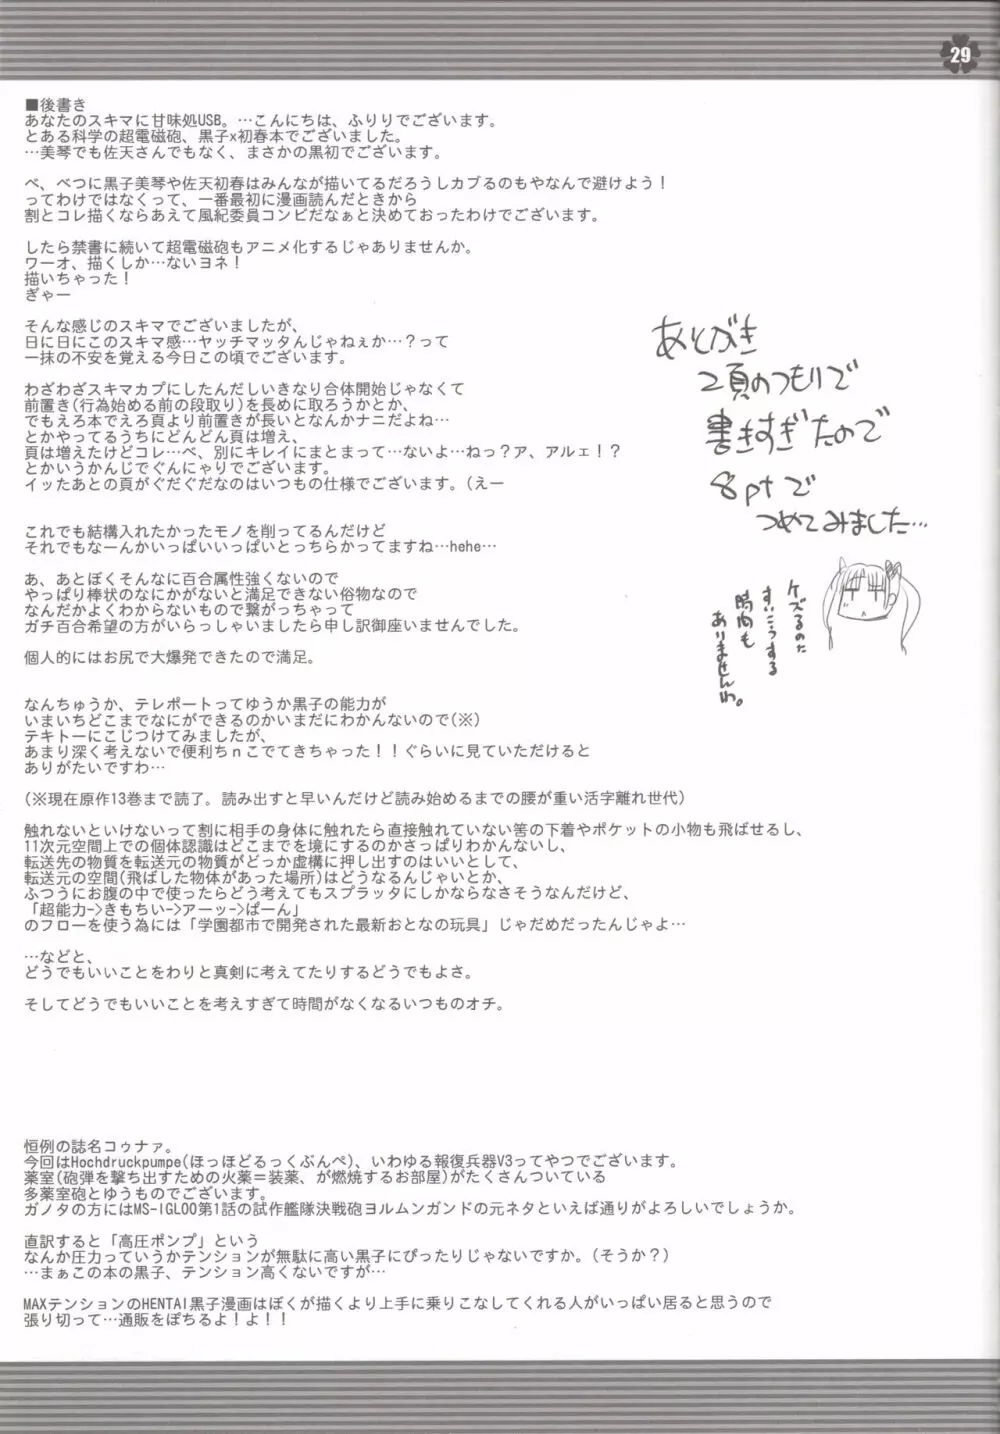 29
■後書き
あなたのスキマに甘味処USB。…こんにちは、ふりりでございます。
とある科学の超電磁砲、黒子x初春本でございました。
…美琴でも佐天さんでもなく、まさかの黒初でございます。
べ、べつに黒子美琴や佐天初春はみんなが描いてるだろうしカブるのもやなんで避けよう!
ってわけではなくって、一番最初に漫画読んだときから
割とコレ描くならあえて風紀委員コンビだなぁと決めておったわけでございます。
したら禁書に続いて超電磁砲もアニメ化するじゃありませんか。
ワーオ、描くしか…ないヨネ!
描いちゃった!
ぎゃー
そんな感じのスキマでございましたが、
日に日にこのスキマ感…ヤッチマッタんじゃねぇか…?って
一抹の不安を覚える今日この頃でございます。
わざわざスキマカプにしたんだしいきなり合体開始じゃなくて
前置き(行為始める前の段取り)を長めに取ろうかとか、
でもえろ本でえろ頁より前置きが長いとなんかナニだよね…
とかやってるうちにどんどん頁は増え、
頁は増えたけどコレ…べ、別にキレイにまとまって…ないよ…ねっ?ア、アルェ!?
とかいうかんじでぐんにゃりでございます。
イッたあとの頁がぐだぐだなのはいつもの仕様でございます。(えー
これでも結構入れたかったモノを削ってるんだけど
それでもなーんかいっぱいいっぱいとっちらかってますね…hehe…
あ、あとぼくそんなに百合属性強くないので
やっぱり棒状のなにかがないと満足できない俗物なので
なんだかよくわからないもので繋がっちゃって
ガチ百合希望の方がいらっしゃいましたら申し訳御座いませんでした。
個人的にはお尻で大爆発できたので満足。
なんちゅうか、テレポートってゆうか黒子の能力が
いまいちどこまでなにができるのかいまだにわかんないので(※)
テキトーにこじつけてみましたが、
あまり深く考えないで便利ちｎこでてきちゃった!!ぐらいに見ていただけると
ありがたいですわ…
(※現在原作13巻まで読了。読み出すと早いんだけど読み始めるまでの腰が重い活字離れ世代)
触れないといけないって割に相手の身体に触れたら直接触れていない筈の下着やポケットの小物も飛ばせるし、
11次元空間上での個体認識はどこまでを境にするのかさっぱりわかんないし、
転送先の物質を転送元の物質がどっか虚構に押し出すのはいいとして、
転送元の空間(飛ばした物体があった場所)はどうなるんじゃいとか、
ふつうにお腹の中で使ったらどう考えてもスプラッタにしかならなさそうなんだけど、
「超能力->きもちい->アーッ->ぱーん」
のフローを使う為には「学園都市で開発された最新おとなの玩具」じゃだめだったんじゃよ…
…などと、
どうでもいいことをわりと真剣に考えてたりするどうでもよさ。
そしてどうでもいいことを考えすぎて時間がなくなるいつものオチ。
恒例の誌名コゥナァ。
今回はHochdruckpumpe(ほっほどるっくぷんぺ)、いわゆる報復兵器V3ってやつでございます。
薬室(砲弾を撃ち出すための火薬＝装薬、が燃焼するお部屋)がたくさんついている
多薬室砲とゆうものでございます。
ガノタの方にはMS-IGLOO第1話の試作艦隊決戦砲ヨルムンガンドの元ネタといえば通りがよろしいでしょうか。
直訳すると「高圧ポンプ」という
なんか圧力っていうかテンションが無駄に高い黒子にぴったりじゃないですか。(そうか?)
…まぁこの本の黒子、テンション高くないですが…
MAXテンションのHENTAI黒子漫画はぼくが描くより上手に乗りこなしてくれる人がいっぱい居ると思うので
張り切って…通販をぽちるよ!よ!!
あとがき
2頁のつもりで
書きすぎたので
8ptで
つめてみました…
ケズるのた
すいこうする
時間も
ありませんわ。